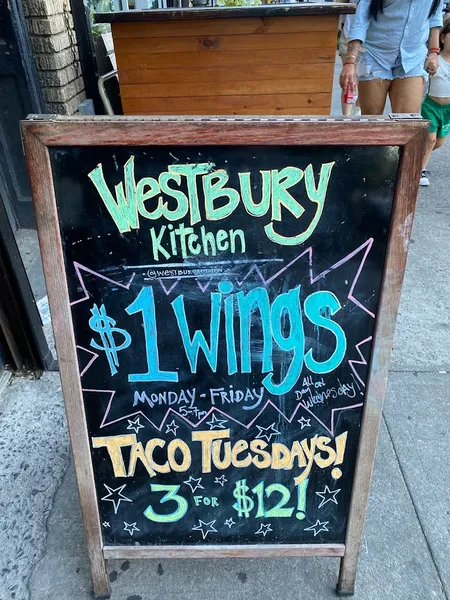 Westbury
Kitchen
$1 Wings
Monday - Friday
5-7pm
All
Day on
Wednesday!
Taco Tuesdays!
3 for $12!